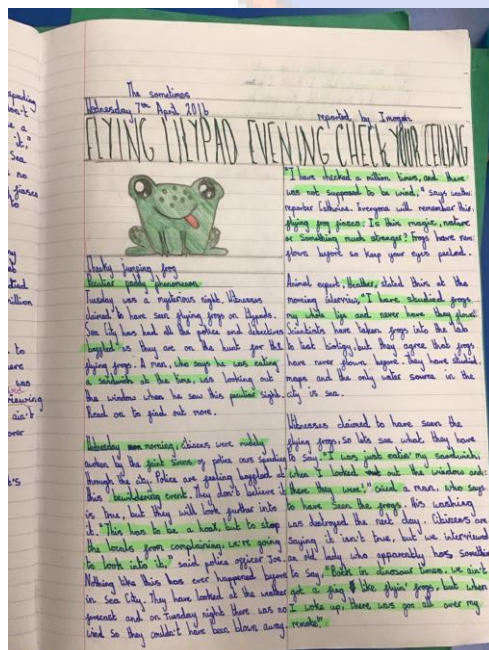 The sometimes
Wednesday 7th April 2016
reported by Imogen
FLYING LILYPAD EVENING CHECK YOUR CEILING
Cheeky jumping frog
peculiar paddy phenomenon
Tuesday was a mysterious night. Witnesses
claimed to have seen flying frogs on lilypads.
Sea City has had all the police and detectives
baggled as they are on the hunt for the
flying frogs. A man, who says he was eating
a sandwich at the time, was looking out
the window when he saw this peculiar sight.
Read on to find out more.
Wednesday morning, citizens were ruddy
awoken by the faint sirens of police cars speeding
through the city. Police are feeling baggled at
this bewildering event. They don't believe it
is true, but they will look further into
it. "This has to be a hoax, but to stop
the locals from complaining, we're going
to look into it," said police officer Joe.
Nothing like this has ever happened before
in Sea City. They have looked at the weather
forecast and on Tuesday night there was no
wind so they couldn't have been blown away
"I have checked a million times, and there
was not supposed to be wind," says weather
reporter Catherine. Everyone will remember this
flying frog fiasco. Is this magic, nature
or something much stranger? Frogs have
flown before so keep your eyes peeled.
Animal expert, Heather, stated this at the
morning interview, "I have studied frogs
my whole life and never have they flown."
Scientists have taken frogs into the lab
to test but they agree that frogs
have never flown before. They have studied
maps and the only water source in the
city is sea.
Witnesses claimed to have seen the
flying frogs, so lets see what they have
to say. "I was just eatin' my sandwich,
when I looked out the window and
there they were!" cried a man, who says
to have seen the frogs. His washing
was destroyed the next day. Citizens are
saying it isn't true, but we interviewed
an old lady who apparently has somethin
to say, "Back in dinosaur times, we ain't
got a fing like flyin' frogs, but when
I woke up, there was goo all over my
remote!"
spending
it,"
Sea
no
fiasco
to
million
to
was
viewing
ain't
over